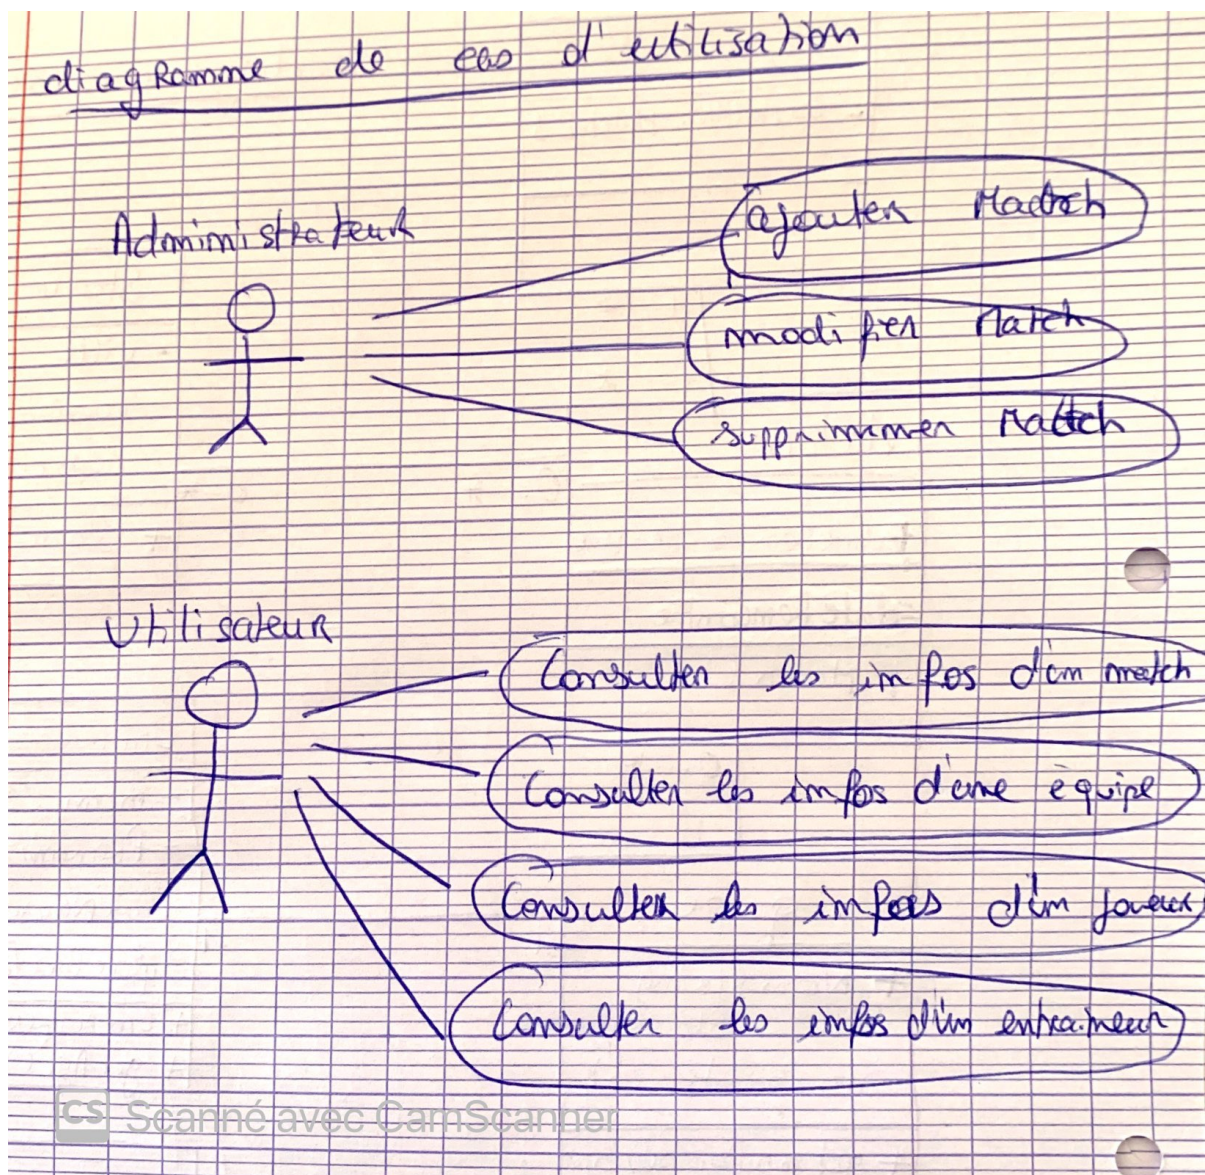 diagramme de cas d'utilisation
Administrateur
ajouter Match
modifier Match
supprimmer Match
Utilisateur
Consulter les infos d'un match
Consulter les infos d'une équipe
Consulter les infos d'un joueur
Consulter les infos d'un entraineur
CS Scanné avec CamScanner